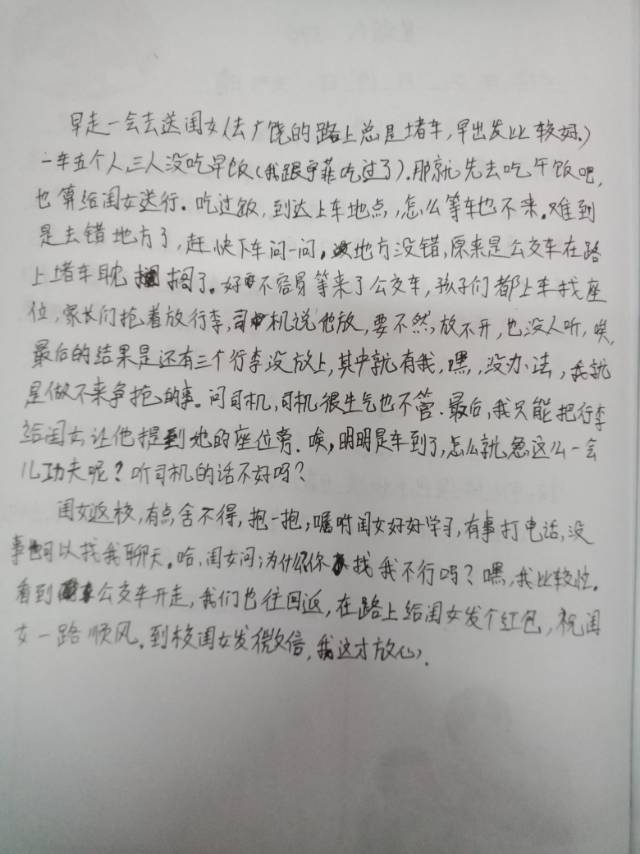 早走一会去送闺女(去广饶的路上总是堵车,早出发比较好。)
一车五个人,三人没吃早饭(我跟宇菲吃过了),那就先去吃午饭吧,
也算给闺女送行。吃过饭,到达上车地点,怎么等车也不来。难到
是去错地方了,赶快下车问一问,地方没错,原来是公交车在路
上堵车耽搁了。好不容易等来了公交车,孩子们都上车找座
位,家长们抢着放行李,司机说他放,要不然,放不开,也没人听,唉,
最后的结果是还有三个行李没放上,其中就有我,嘿,没办法,我就
是做不来争抢的事。问司机,司机很生气也不管。最后,我只能把行李
给闺女让他提到她的座位旁。唉,明明是车到了,怎么就急这么一会
儿功夫呢?听司机的话不好吗?
闺女返校,有点舍不得,抱一抱,嘱咐闺女好好学习,有事打电话,没
事可以找我聊天。哈,闺女问:为什么你找我不行吗?嘿,我比较忙。
看到公交车开走,我们也往回返,在路上给闺女发个红包,祝闺
女一路顺风。到校闺女发微信,我这才放心。